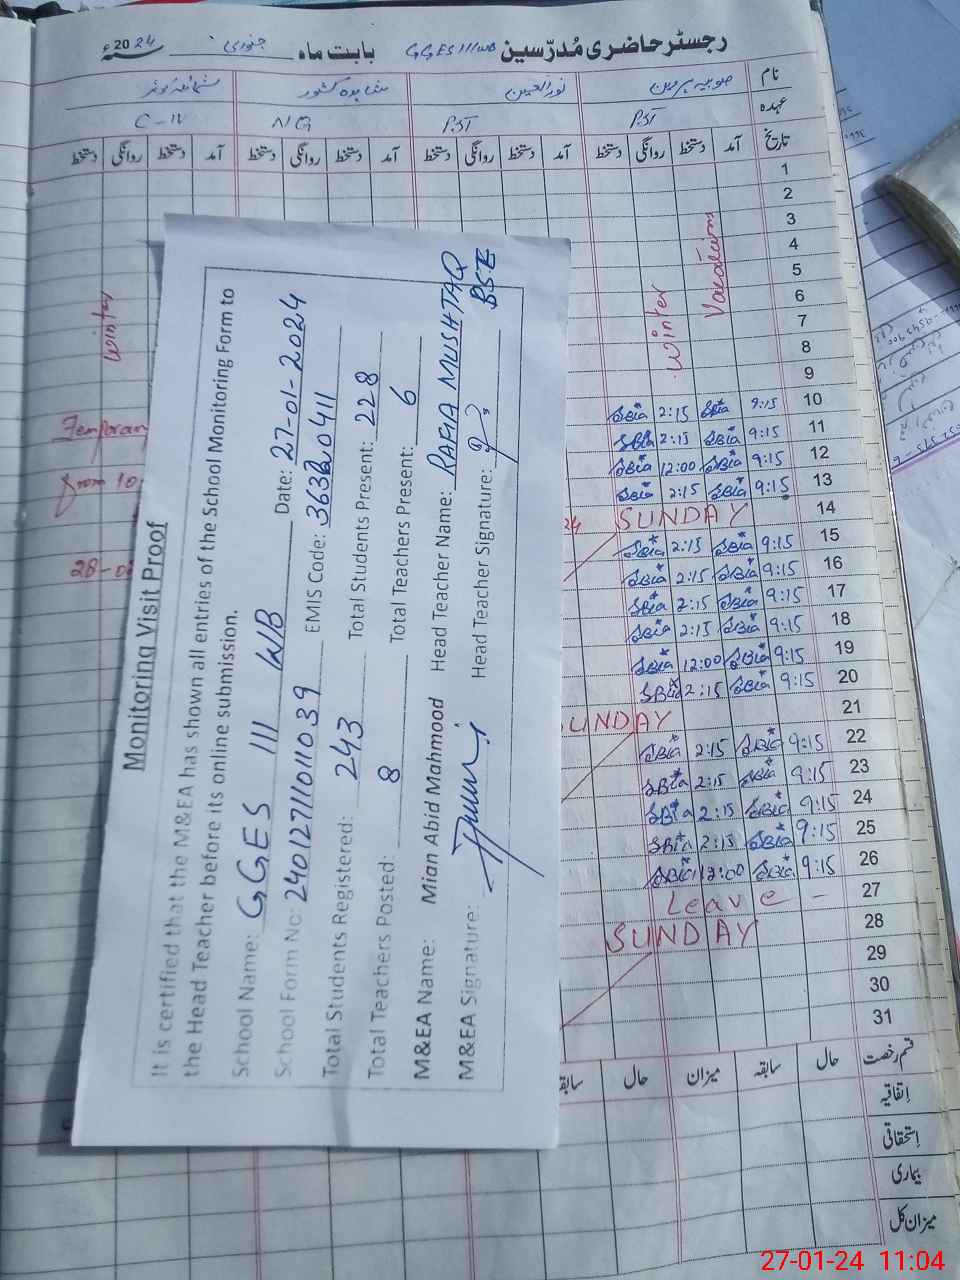 رجسٹر حاضری مُدرّسین GGES 111/WB بابت ماہ جنوری 2024ء
نام صوبیہ پروین نورالعین مشاہدہ کشور
عہدہ P.S.T P.S.T N/Q C-IV
تاریخ آمد دستخط روانگی دستخط آمد دستخط روانگی دستخط آمد دستخط روانگی دستخط آمد دستخط روانگی دستخط
1
2
3
4
5
6
7
8
9
winter Vacations
winter
10 9:15 SBia 2:15 SBia
11 9:15 SBia 2:15 SBia
12 9:15 SBia 12:00 SBia
13 9:15 SBia 2:15 SBia
14 SUNDAY
15 9:15 SBia 2:15 SBia
16 9:15 SBia 2:15 SBia
17 9:15 SBia 2:15 SBia
18 9:15 SBia 2:15 SBia
19 9:15 SBia 12:00 SBia
20 9:15 SBia 2:15 SBia
21 SUNDAY
22 9:15 SBia 2:15 SBia
23 9:15 SBia 2:15 SBia
24 9:15 SBia 2:15 SBia
25 9:15 SBia 2:15 SBia
26 9:15 SBia 12:00 SBia
27 Leave -
28 SUNDAY
29
30
31
Temporary
from 10
28-0
قسم رخصت حال سابقہ میزان حال سابقہ
اِتفاقیہ
اِستحقاقی
بیماری
میزان کل
Monitoring Visit Proof
It is certified that the M&EA has shown all entries of the School Monitoring Form to
the Head Teacher before its online submission.
School Name: GGES 111 WB Date: 27-01-2024
School Form No: 240127110111039 EMIS Code: 36320411
Total Students Registered: 243 Total Students Present: 228
Total Teachers Posted: 8 Total Teachers Present: 6
M&EA Name: Mian Abid Mahmood Head Teacher Name: RAFIA MUSHTAQ
M&EA Signature: Head Teacher Signature: BSE
27-01-24 11:04